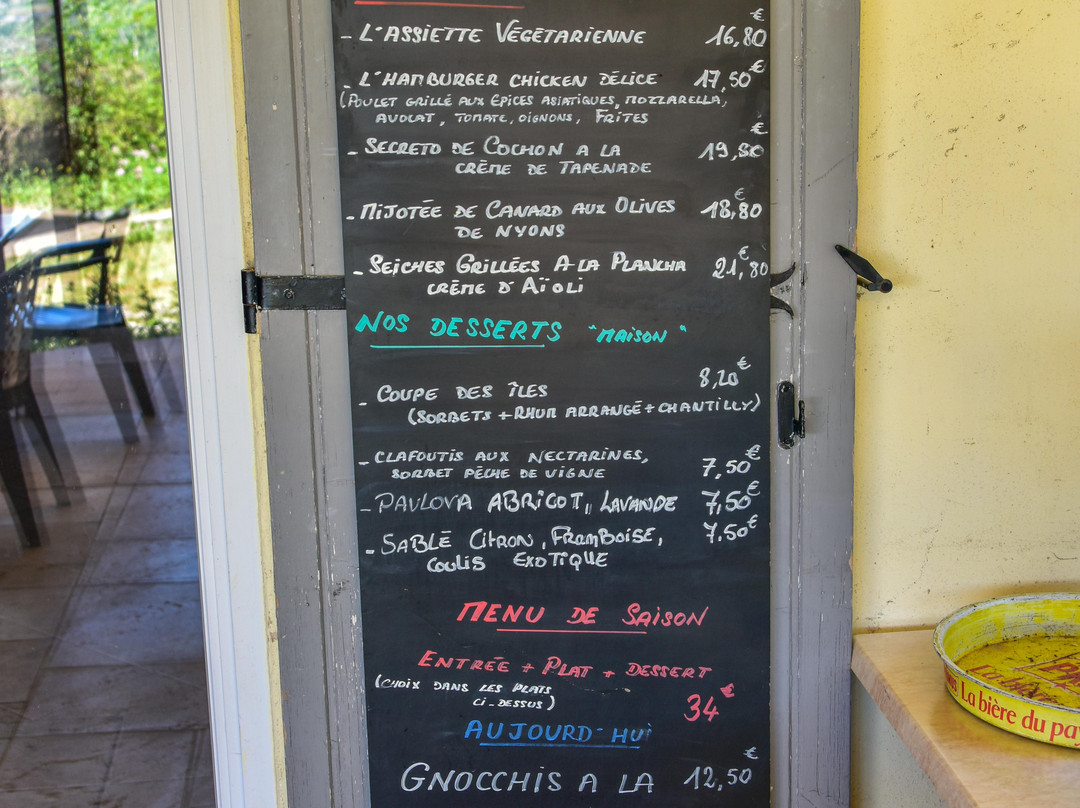 - L'ASSIETTE VÉGÉTARIENNE 16,80€
- L'HAMBURGER CHICKEN DÉLICE 17,50€
(POULET GRILLÉ AUX EPICES ASIATIQUES, MOZZARELLA,
AVOCAT, TOMATE, OIGNONS, FRITES
- SECRETO DE COCHON A LA 19,80€
CRÈME DE TAPENADE
- MIJOTÉE DE CANARD AUX OLIVES 18,80€
DE NYONS
- SEICHES GRILLÉES A LA PLANCHA 21,80€
CRÈME D'AÏOLI
NOS DESSERTS "MAISON"
- COUPE DES ÎLES 8,20€
(SORBETS + RHUM ARRANGÉ + CHANTILLY)
- CLAFOUTIS AUX NECTARINES,
SORBET PÊCHE DE VIGNE 7,50€
- PAVLOVA ABRICOT, LAVANDE 7,50€
- SABLÉ CITRON, FRAMBOISE, 7.50€
COULIS EXOTIQUE
MENU DE SAISON
ENTRÉE + PLAT + DESSERT
(CHOIX DANS LES PLATS
CI-DESSUS) 34€
AUJOURD'HUI
GNOCCHIS A LA 12,50€
La bière du pa